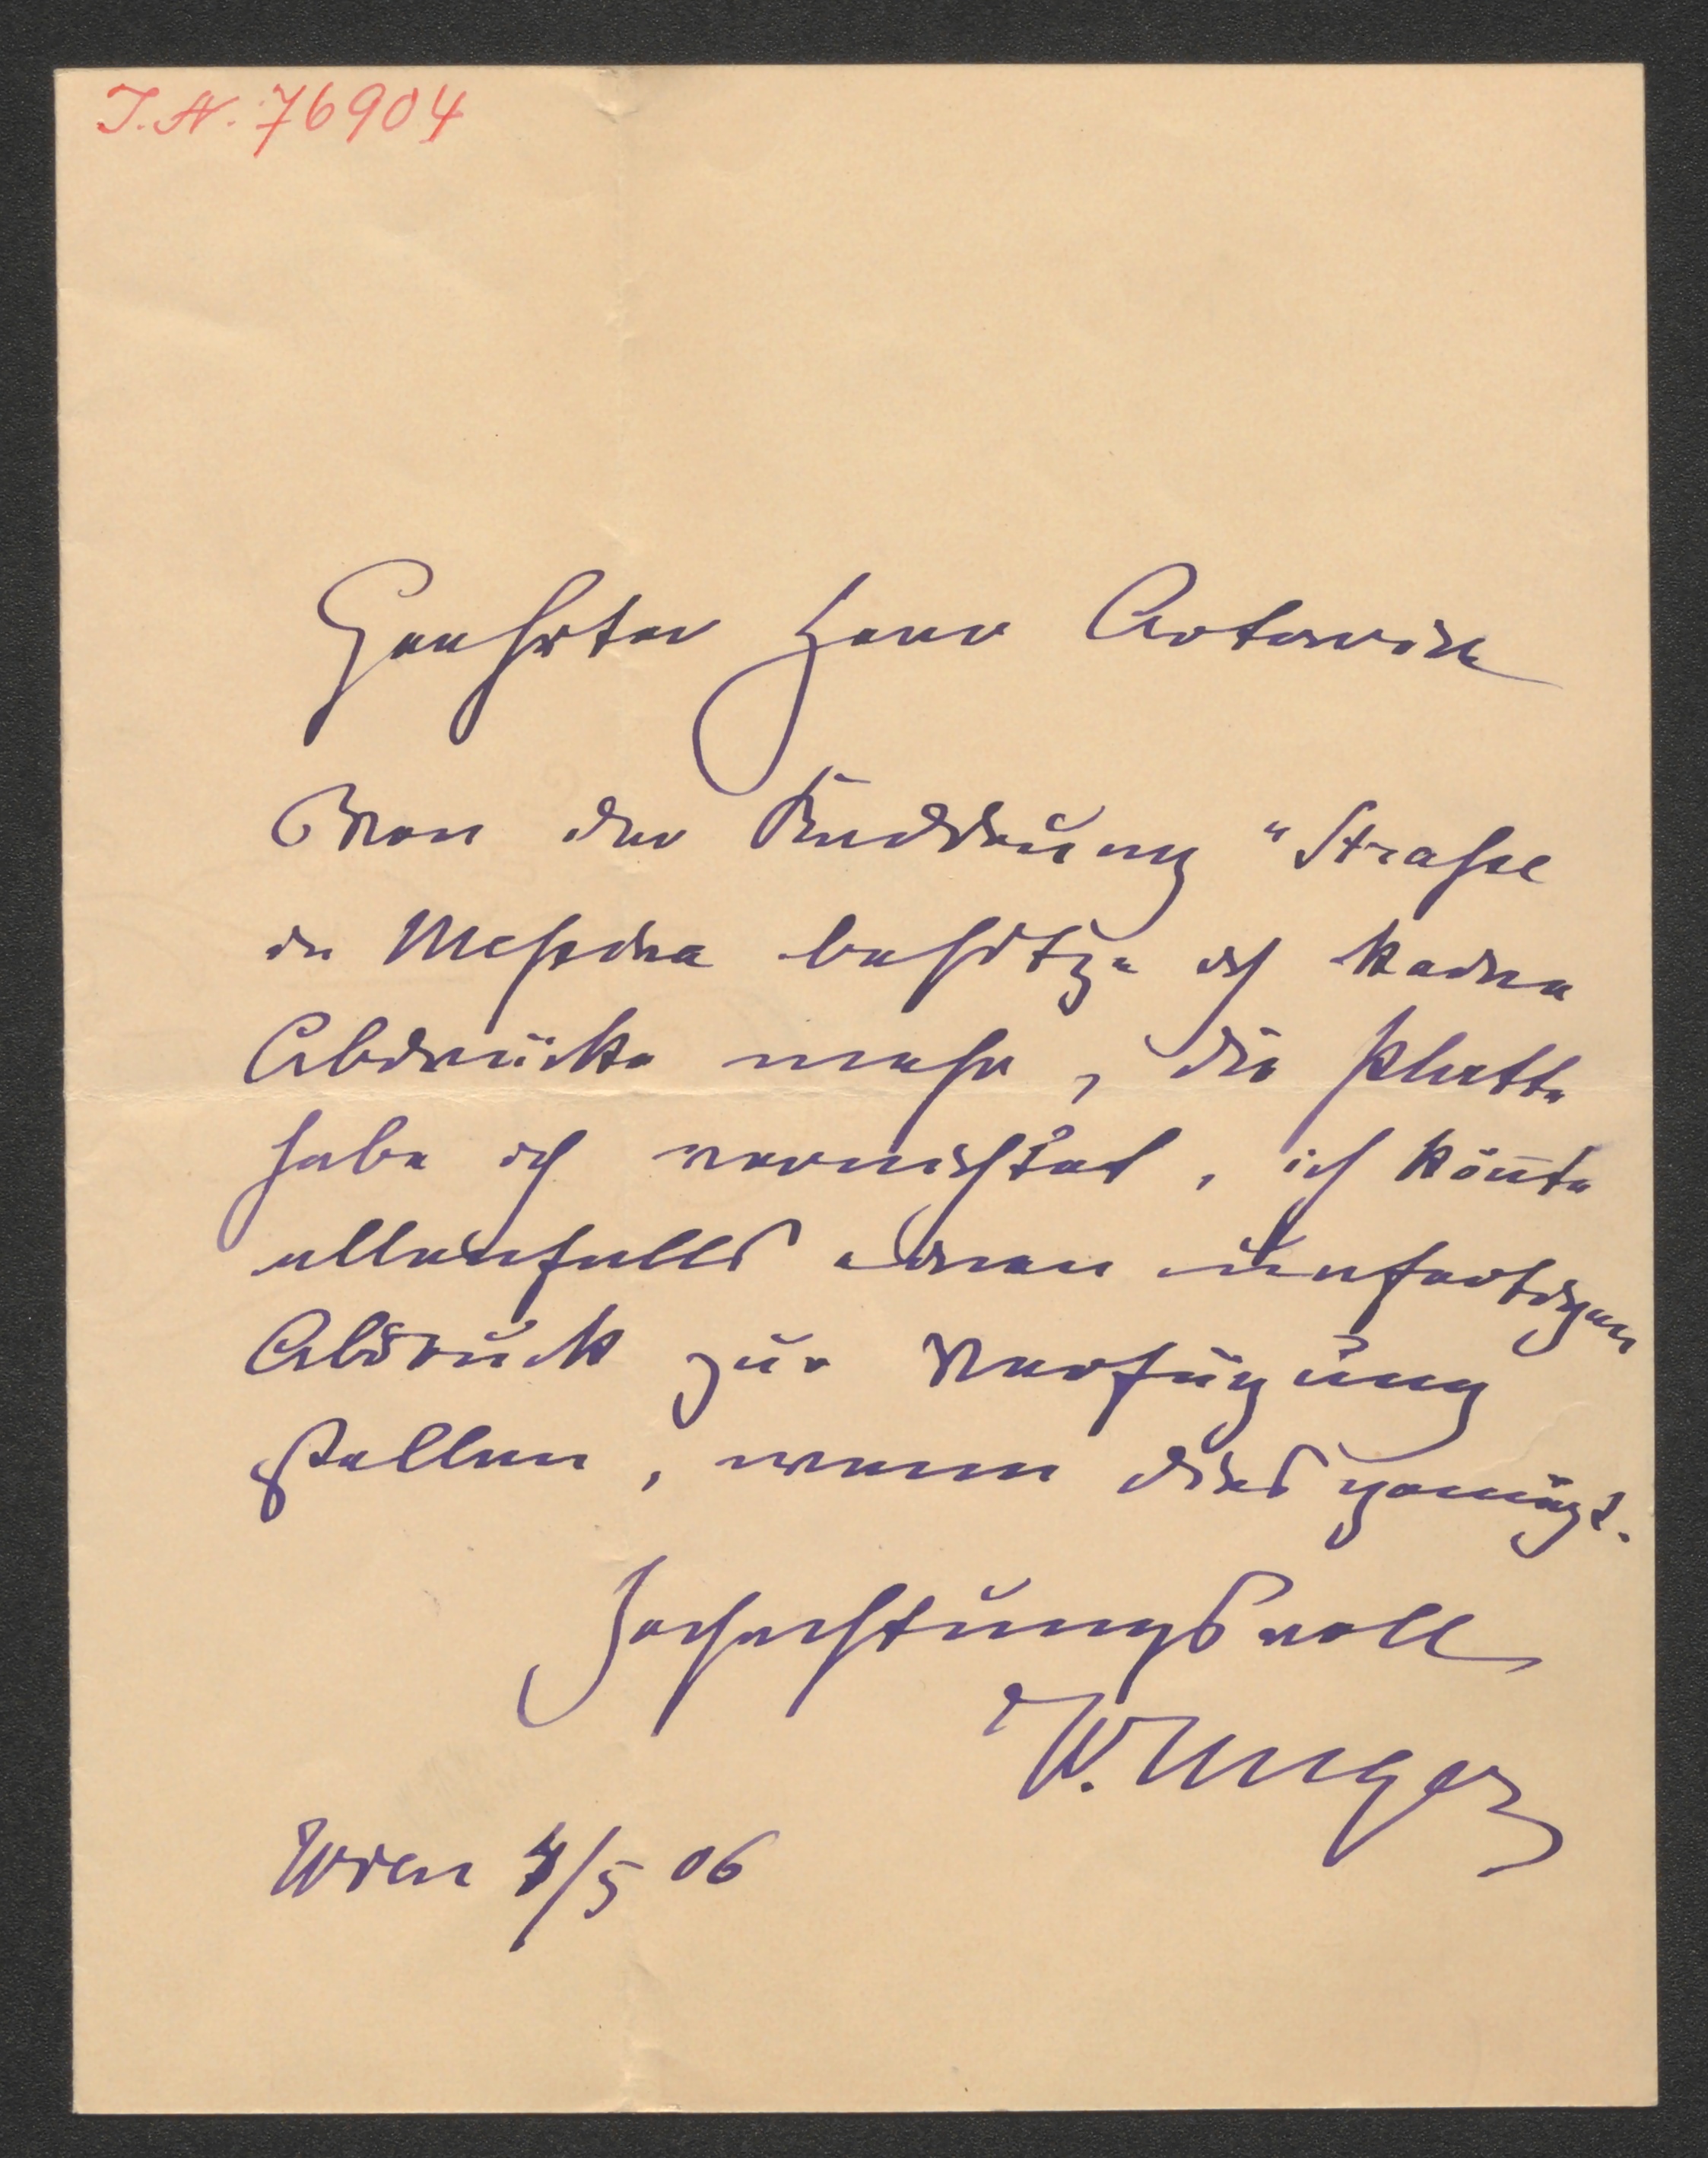 J. N. 76904
Geehrter Herr Artaria
Von der Radirung "Straße
in Meßina besitze ich keine
Abdrücke mehr, die Platte
habe ich vernichtet, ich kön̄te
allenfalls einen unfertigen
Abdruck zur Verfügung
stellen, wenn dies genügt.
Hochachtungsvoll
W. Unger
Wien /5 06